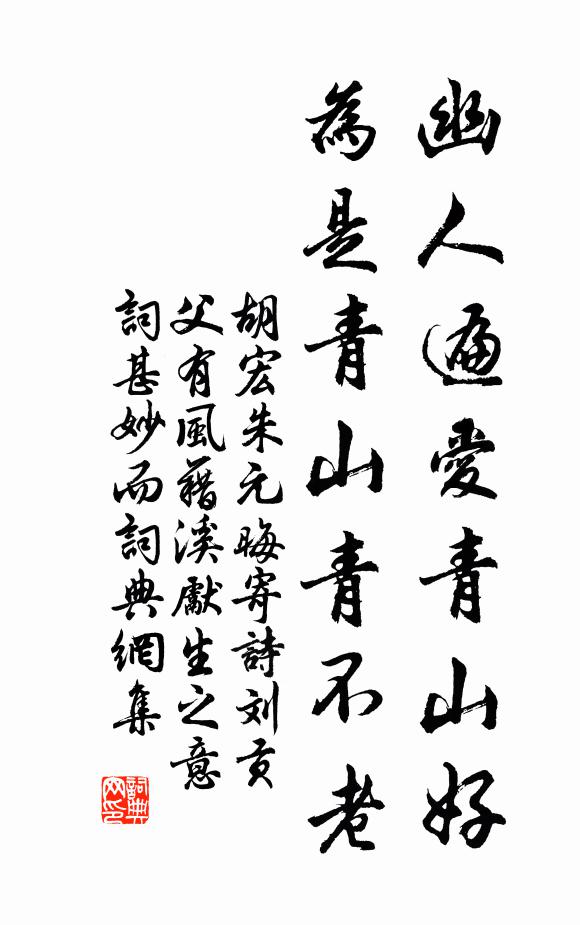 幽人遍愛青山好
為是青山青不老
胡宏朱元晦寄詩刘贡
父有風藉溪獻生之意
詞甚妙而詞典網集
詞典
网印